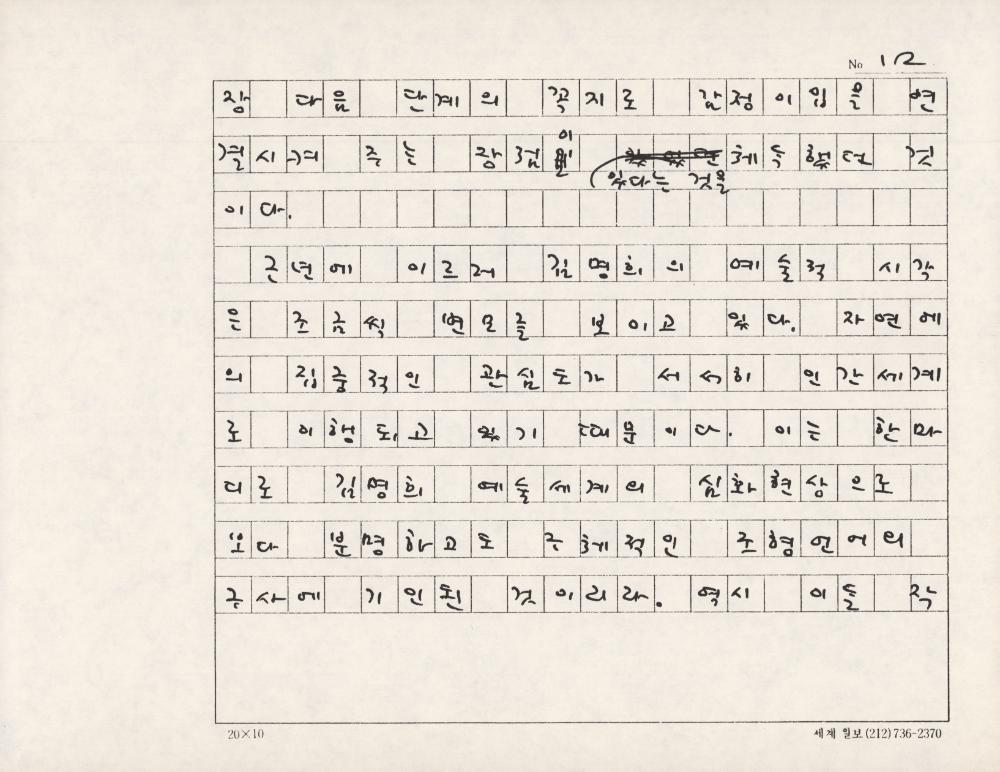 No 12
장 다음 단계의 꼭지로 감정이입을 연
결시켜 주는 광점이 체득했던 것
있다는 것을
이다.
근년에 이르러 김명희의 예술적 시각
은 조금씩 변모를 보이고 있다. 자연에
의 집중적인 관심도가 서서히 인간세계
로 이행되고 있기 때문이다. 이는 한마
디로 김명희 예술세계의 심화현상으로
보다 분명하고도 구체적인 조형언어의
구사에 기인된 것이리라. 역시 이들 작
20×10
세계 월보 (212) 736-2370